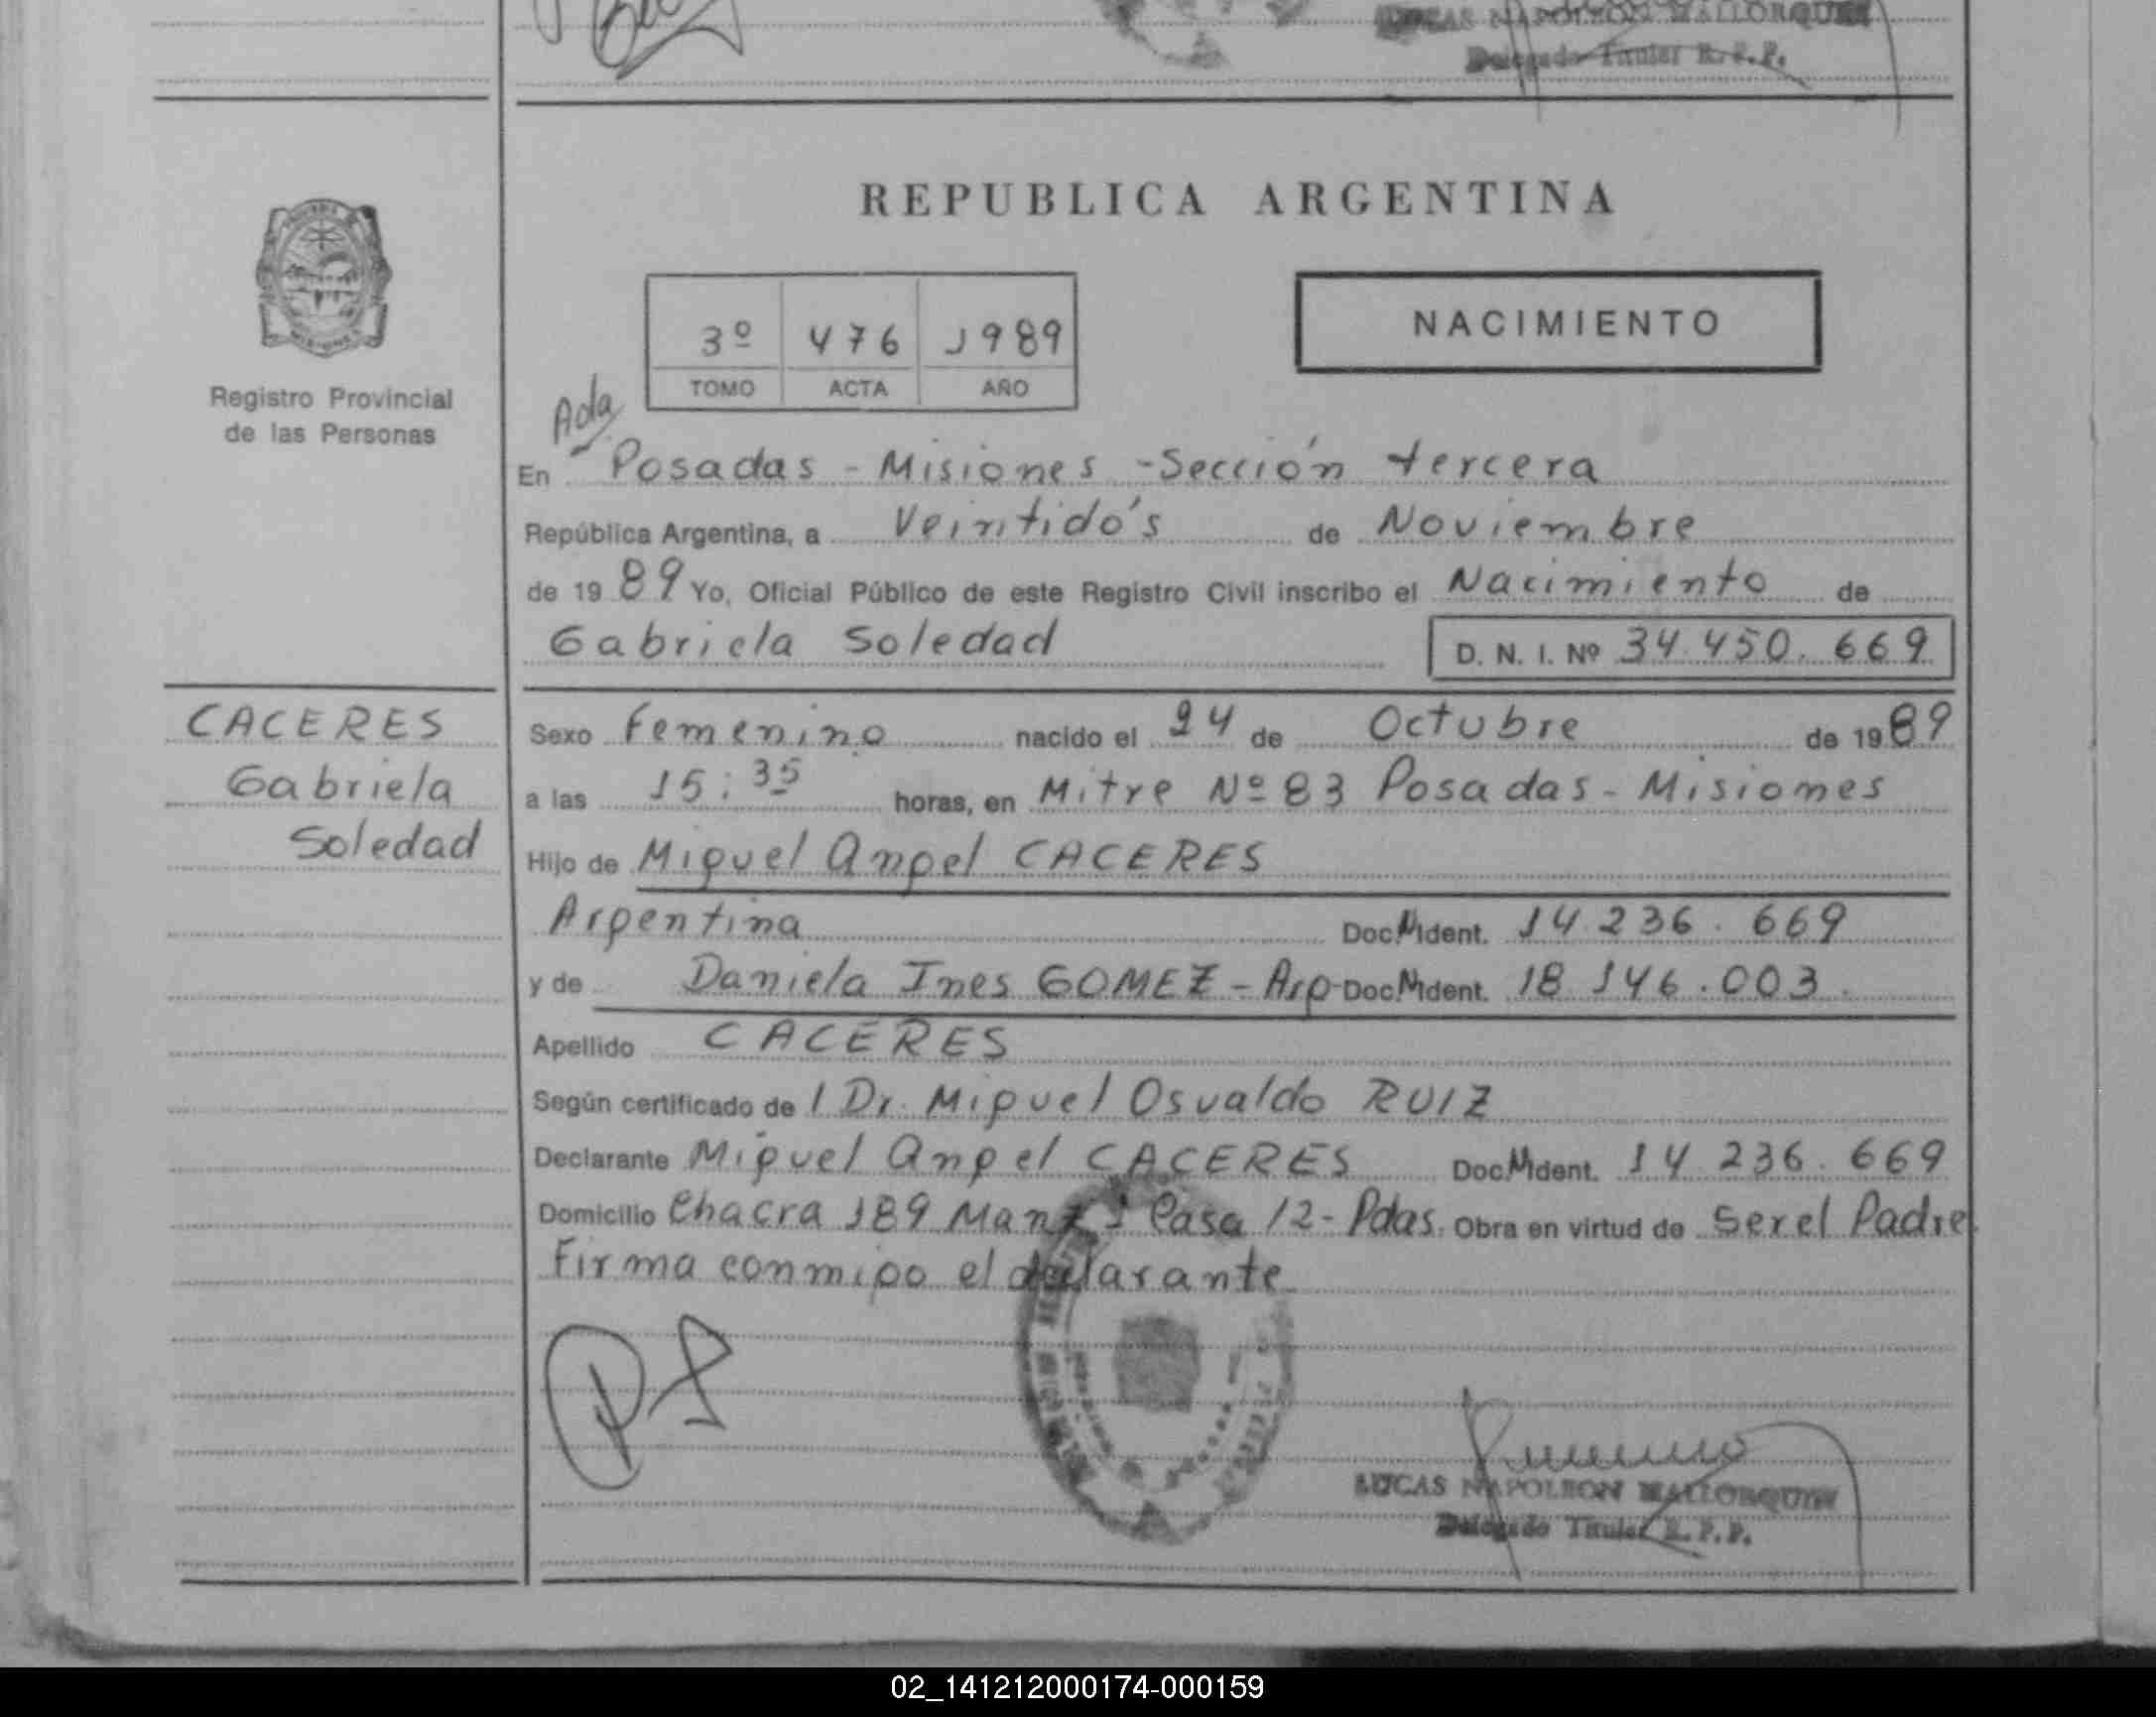 LUCAS NAPOLEON MALLORQUIN
Delegado Titular R. P. P.
REPUBLICA ARGENTINA
3º 476 1989
TOMO ACTA AÑO
NACIMIENTO
Registro Provincial
de las Personas
Ada
En Posadas - Misiones - Sección tercera
República Argentina, a Veintidós de Noviembre
de 19 89 Yo, Oficial Público de este Registro Civil inscribo el Nacimiento de
Gabriela Soledad D. N. I. Nº 34.450.669
CACERES
Gabriela
Soledad
Sexo Femenino nacido el 24 de Octubre de 19 89
a las 15:35 horas, en Mitre Nº 83 Posadas - Misiones
Hijo de Miguel Angel CACERES
Argentina Doc. N. Ident. 14.236.669
y de Daniela Ines GOMEZ - Arg - Doc. N. Ident. 18.146.003.
Apellido CACERES
Según certificado de l Dr. Miguel Osvaldo RUIZ
Declarante Miguel Angel CACERES Doc. N. Ident. 14.236.669
Domicilio Chacra 189 Manz Casa 12 - Pdas. Obra en virtud de Ser el Padre
Firma conmigo el declarante
LUCAS NAPOLEON MALLORQUIN
Delegado Titular R. P. P.
02_141212000174-000159